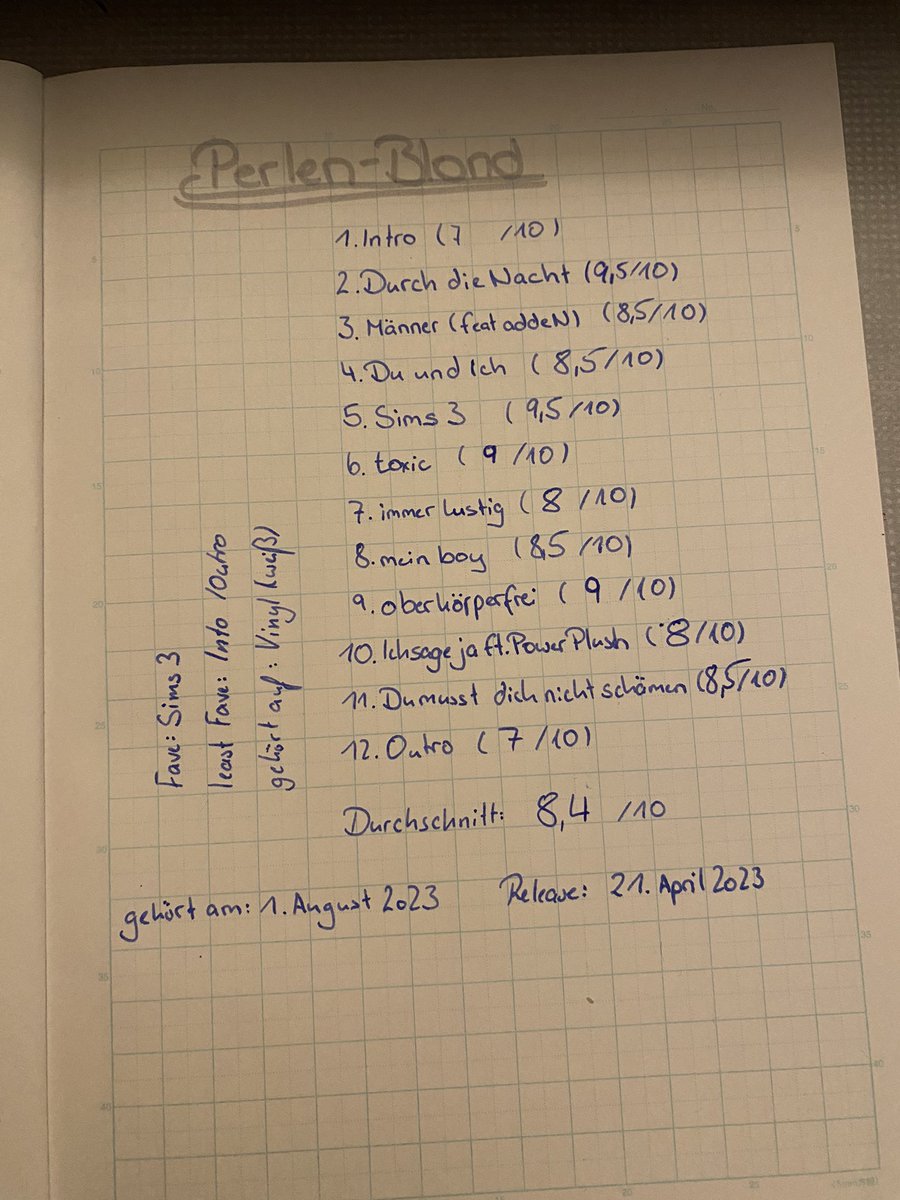 Perlen-Blond
1. Intro (7 /10)
2. Durch die Nacht (9,5/10)
3. Männer (feat addeN) (8,5/10)
4. Du und Ich (8,5/10)
5. Sims 3 (9,5/10)
6. toxic (9 /10)
7. immer lustig (8 /10)
8. mein boy (8,5 /10)
9. oberkörperfrei (9 /10)
10. Ich sage ja ft. Power Plush (8/10)
11. Du musst dich nicht schämen (8,5/10)
12. Outro (7 /10)
Durchschnitt: 8,4 /10
Fave: Sims 3
least Fave: Into /Outro
gehört auf: Vinyl (weiß)
gehört am: 1. August 2023 Release: 21. April 2023